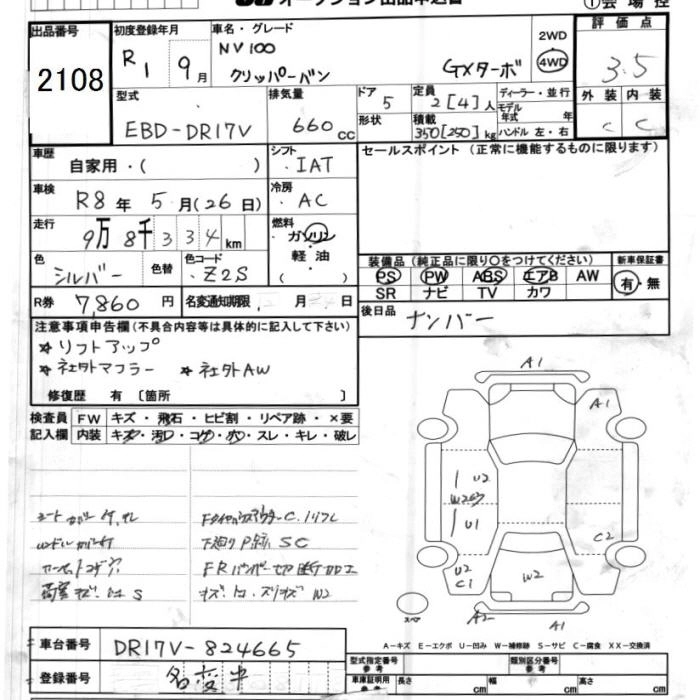 出品番号
2108
初度登録年月
R1 9月
車名・グレード
NV100
クリッパーバン GXターボ
2WD
4WD
評価点
3.5
外装 内装
C C
型式
EBD-DR17V
排気量
660 cc
ドア
5
形状
定員
2[4]人
積載
350[250]kg
ディーラー・並行
モデル年式 年
ハンドル 左・右
車歴
自家用・( )
シフト
IAT
車検
R8年 5月(26日)
冷房
AC
走行
9万8千334km
燃料
ガソリン
軽油
( )
色
シルバー
色替
色コード
Z2S
R券
7,860円
名変通知期限 月 日
セールスポイント (正常に機能するものに限ります)
装備品 (純正品に限り○をつけてください)
PS PW ABS エアB AW
SR ナビ TV カワ
新車保証書
有・無
後日品
ナンバー
注意事項申告欄(不具合内容等は具体的に記入して下さい)
★リフトアップ
★社外マフラー ★社外AW
修復歴 有 [箇所 ]
検査員記入欄
FW キズ・飛石・ヒビ割・リペア跡・×要
内装 キズ・汚レ・コゲ・穴・スレ・キレ・破レ
下廻りP録 SC
FRバンパー切断加工
A1
A1
U2
W2
U1
C2
U2
C1
W2
スペア
A2
A1
A-キズ E-エクボ U-凹み W-補修跡 S-サビ C-腐食 XX-交換済
車台番号
DR17V-824665
登録番号
名変中
型式指定番号
参考
類別区分番号
参考
車庫証明用
参考
長さ cm
幅 cm
高さ cm